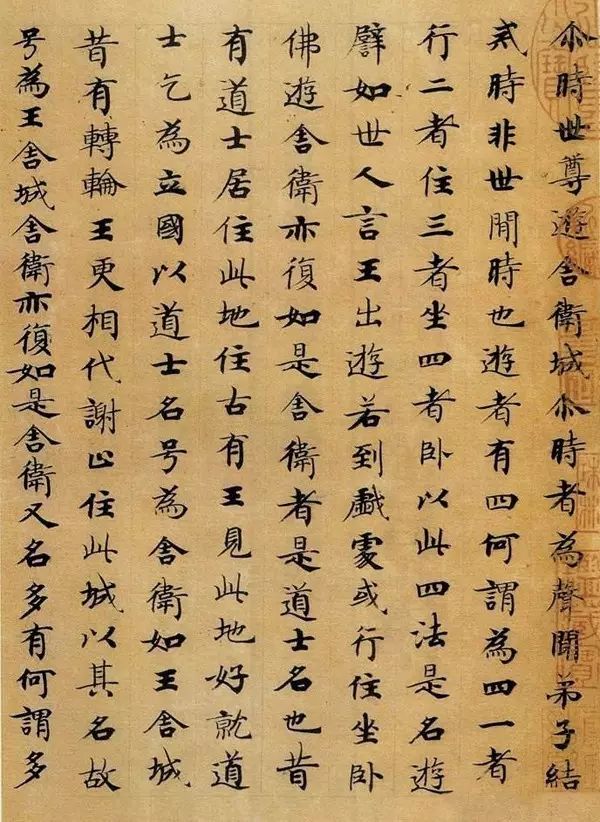 尒時世尊遊舍衛城尒時者為聲聞弟子結
戒時非世閒時也遊者有四何謂為四一者
行二者住三者坐四者卧以此四法是名遊
譬如世人言王出遊若到戲處或行住坐卧
佛遊舍衛亦復如是舍衛者是道士名也昔
有道士居住此地住古有王見此地好就道
士乞為立國以道士名号為舍衛如王舍城
昔有轉輪王更相代謝止住此城以其名故
号為王舍城舍衛亦復如是舍衛又名多有何謂多